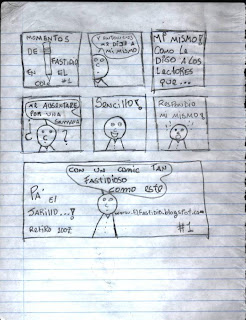 MOMENTOS
DE
FASTIDIO
EN EL
#1
Y ENTONCES
ME DIJE A
MI MISMO
MI MISMO!
COMO LE
DIGO A LOS
LECTORES
QUE...
ME AUSENTARE
POR UNA
SEMANA
?
SENCILLO!
RESPONDIA
MI MISMO!
CON UN COMIC TAN
FASTIDIOSO
COMO ESTE
PA'
EL
JARILLO...!
2007
www.elfastidio.blogspot.com
#1